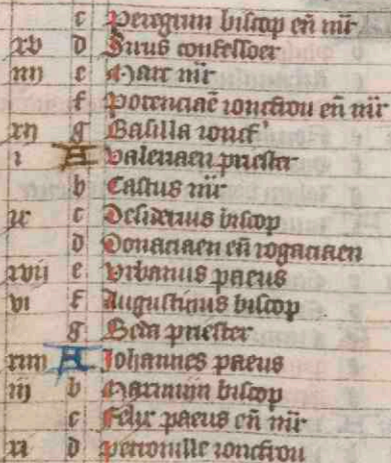 c Peregrin biscop en̄ mr̄
xv d Sirus confessoer
iiij e Marc mr̄
f Potenciaē ioncfrou en̄ mr̄
xij g Basilla ioncf'
i A Valeriaen priester
b Castus mr̄
ix c Desiderius biscop
d Donaciaen en̄ rogaciaen
xvij e Urbanus paeus
vi f Augustinus biscop
g Beda priester
xiiij A Johannes paeus
iij b Maximijn biscop
c Felix paeus en̄ mr̄
xi d Petronille ioncfrou